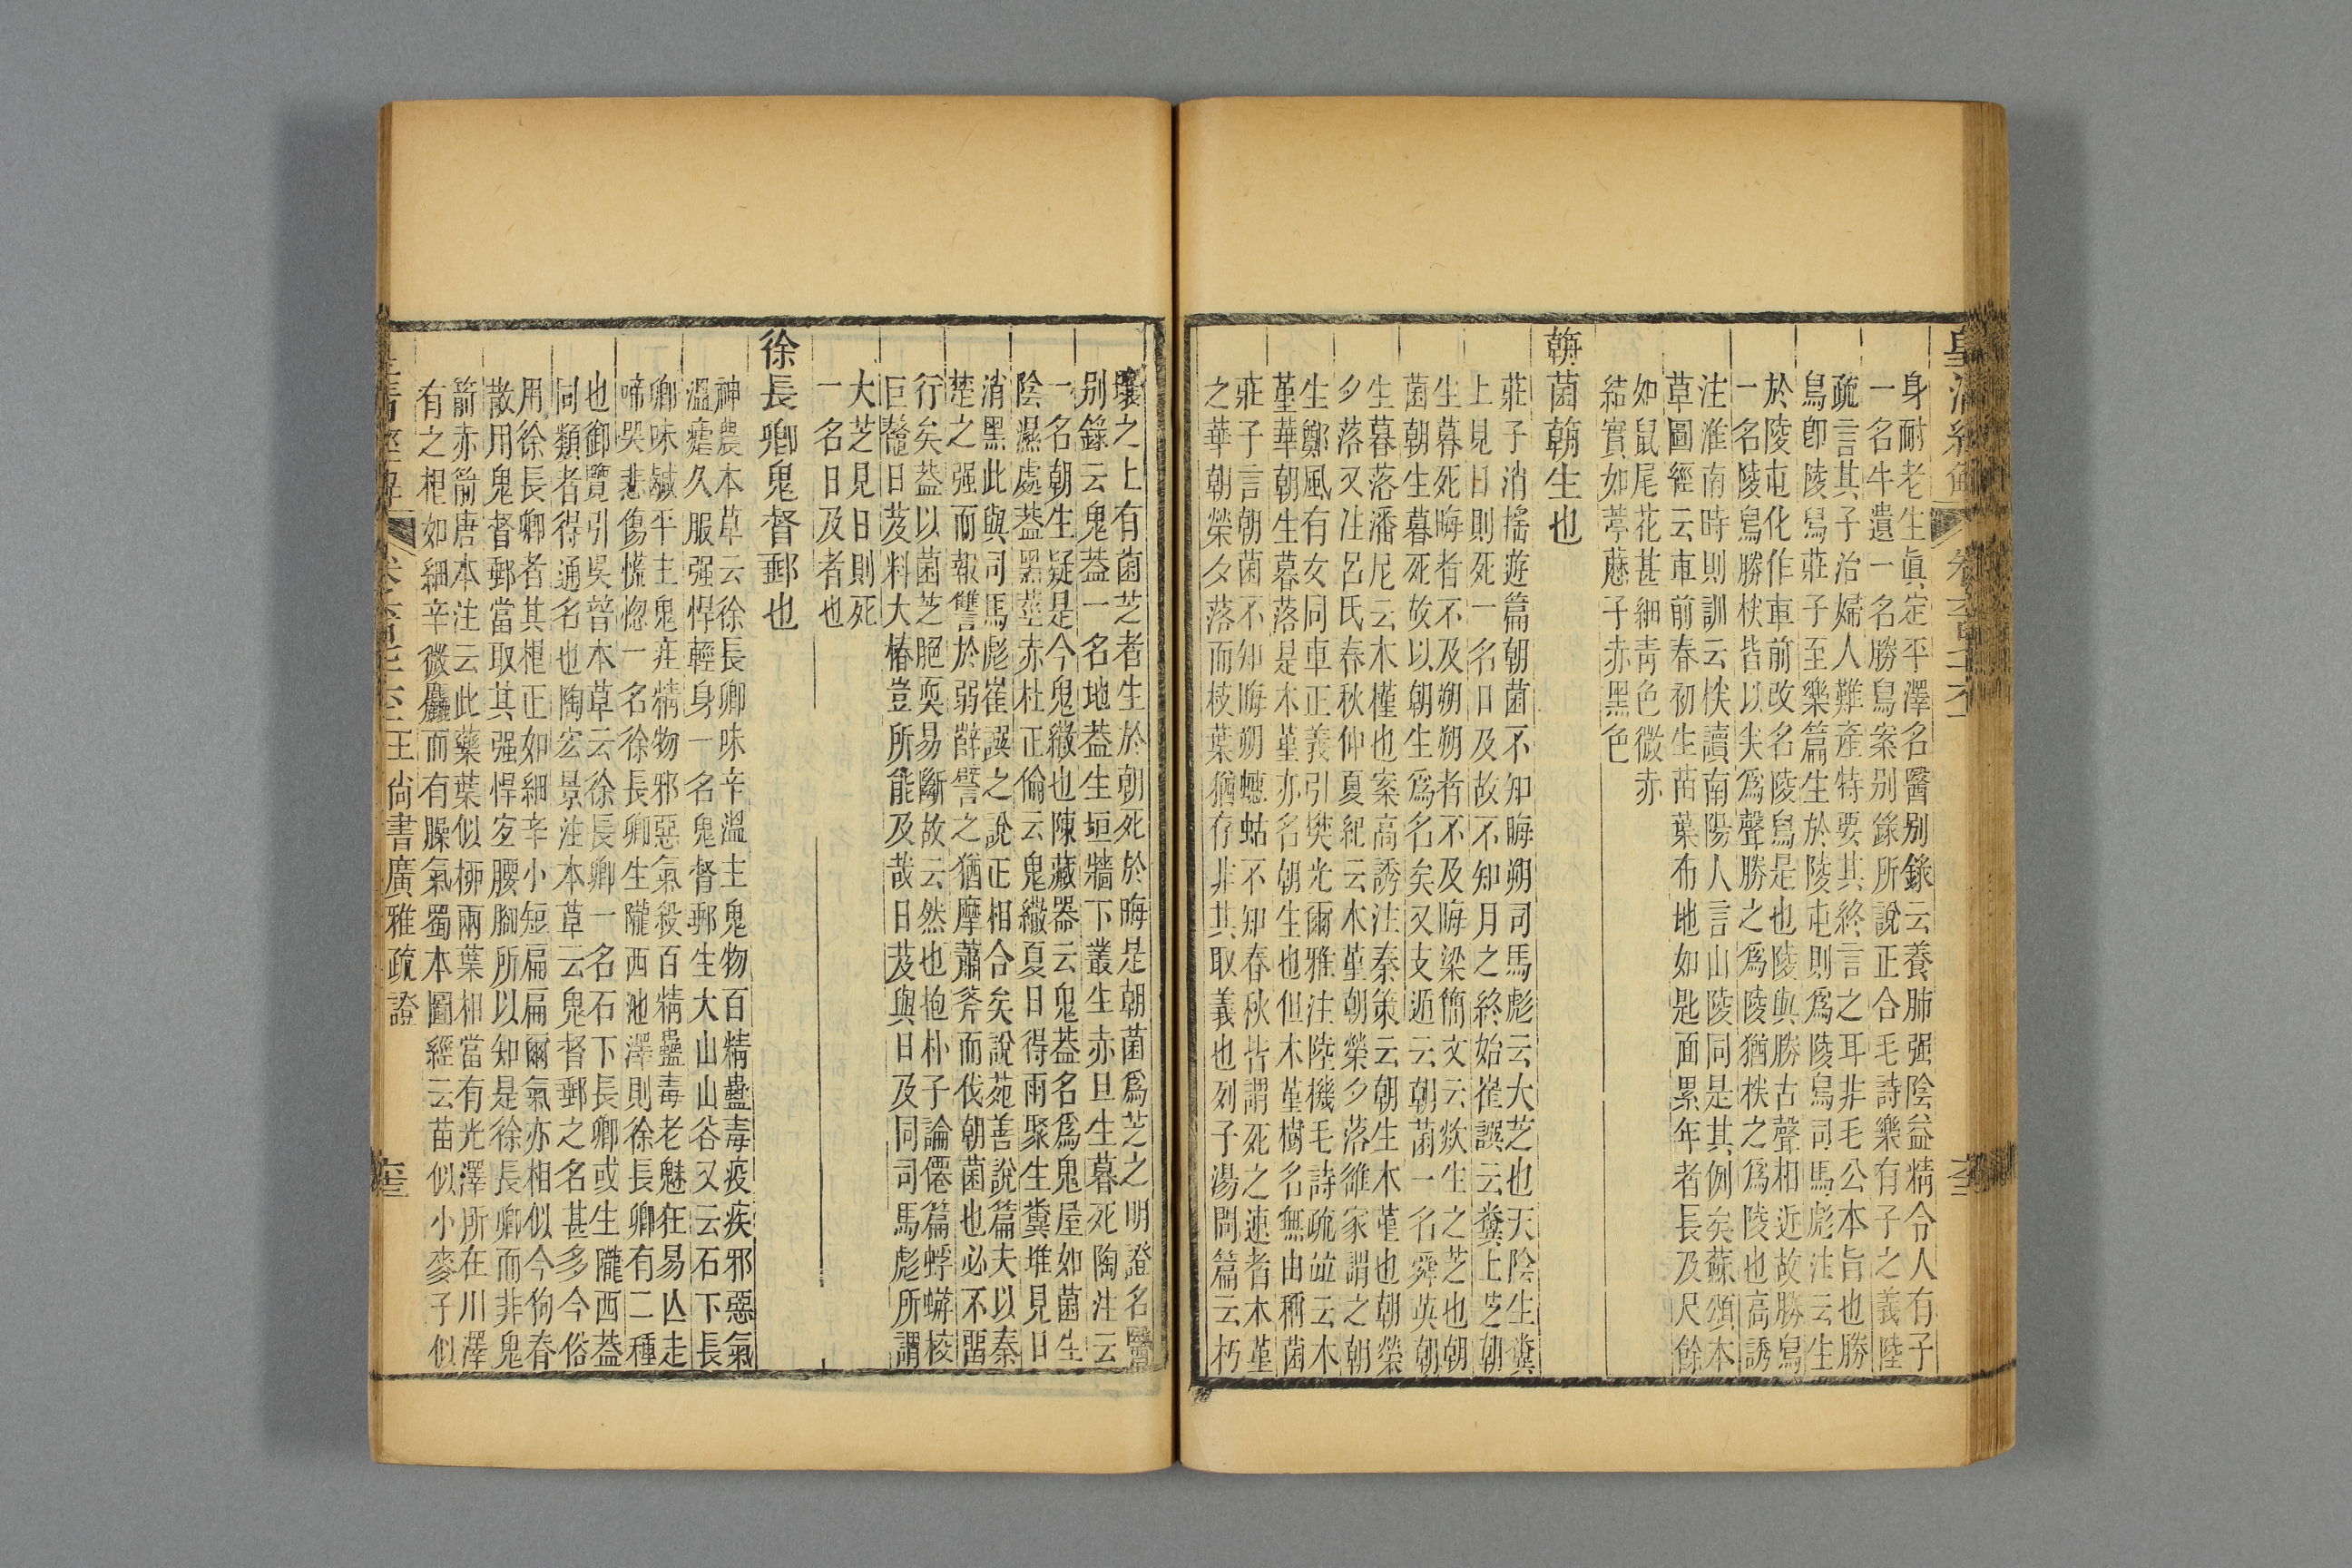 皇清經解
身耐老生眞定平澤名醫別錄云養肺强陰益精令人有子
一名牛遺一名勝舄案別錄所說正合毛詩樂有子之義陸
疏言其子治婦人難產特要其終言之耳非毛公本旨也勝
舄卽陵舄莊子至樂篇生於陵屯則爲陵舄司馬彪注云生
於陵屯化作車前改名陵舄是也陵與勝古聲相近故勝舄
一名陵舄勝栚皆以灷爲聲勝之爲陵猶栚之爲陵也高誘
注淮南時則訓云栚讀南陽人言山陵同是其例矣蘇頌本
草圖經云車前春初生苗葉布地如匙面累年者長及尺餘
如鼠尾花甚細青色微赤
結實如葶藶子赤黑色
朝菌朝生也
莊子消搖遊篇朝菌不知晦朔司馬彪云大芝也天陰生糞
上見日則死一名日及故不知月之終始崔譔云糞上芝朝
生暮死晦者不及朔朔者不及晦梁簡文云欻生之芝也朝
菌朝生暮死故以朝生爲名矣又支遁云朝菌一名舜英朝
生暮落潘尼云木槿也案高誘注秦策云朝生木堇也朝榮
夕落又注呂氏春秋仲夏紀云木堇朝榮夕落雒家謂之朝
生鄭風有女同車正義引樊光爾雅注陸機毛詩疏竝云木
堇華朝生暮落是木堇亦名朝生也但木堇樹名無由稱菌
莊子言朝菌不知晦朔蟪蛄不知春秋皆謂死之速者木堇
之華朝榮夕落而枝葉猶存非其取義也列子湯問篇云朽
壤之上有菌芝者生於朝死於晦是朝菌爲芝之明證名醫
別錄云鬼葢一名地葢生垣牆下叢生赤旦生暮死陶注云
一名朝生疑是今鬼繖也陳藏器云鬼葢名爲鬼屋如菌生
陰濕處葢黑莖赤杜正倫云鬼繖夏日得雨聚生糞堆見日
消黑此與司馬彪崔譔之說正相合矣說苑善說篇夫以秦
楚之强而報讐於弱薛譬之猶摩蕭斧而伐朝菌也必不畱
行矣葢以菌芝脃耎易斷故云然也抱朴子論僊篇蜉蝣校
巨鼇日芨料大椿豈所能及哉日芨與日及同司馬彪所謂
大芝見日則死
一名日及者也
徐長卿鬼督郵也
神農本草云徐長卿味辛溫主鬼物百精蠱毒疫疾邪惡氣
溫瘧久服强悍輕身一名鬼督郵生大山山谷又云石下長
卿味鹹平主鬼疰精物邪惡氣殺百精蠱毒老魅狂易亾走
啼哭悲傷慌惚一名徐長卿生隴西池澤則徐長卿有二種
也御覽引吳普本草云徐長卿一名石下長卿或生隴西葢
同類者得通名也陶宏景注本草云鬼督郵之名甚多今俗
用徐長卿者其根正如細辛小短扁扁爾氣亦相似今狗脊
散用鬼督郵當取其强悍宐腰腳所以知是徐長卿而非鬼
箭赤箭唐本注云此藥葉似柳兩葉相當有光澤所在川澤
有之根如細辛微麤而有臊氣蜀本圖經云苗似小麥子似
王尙書廣雅疏證